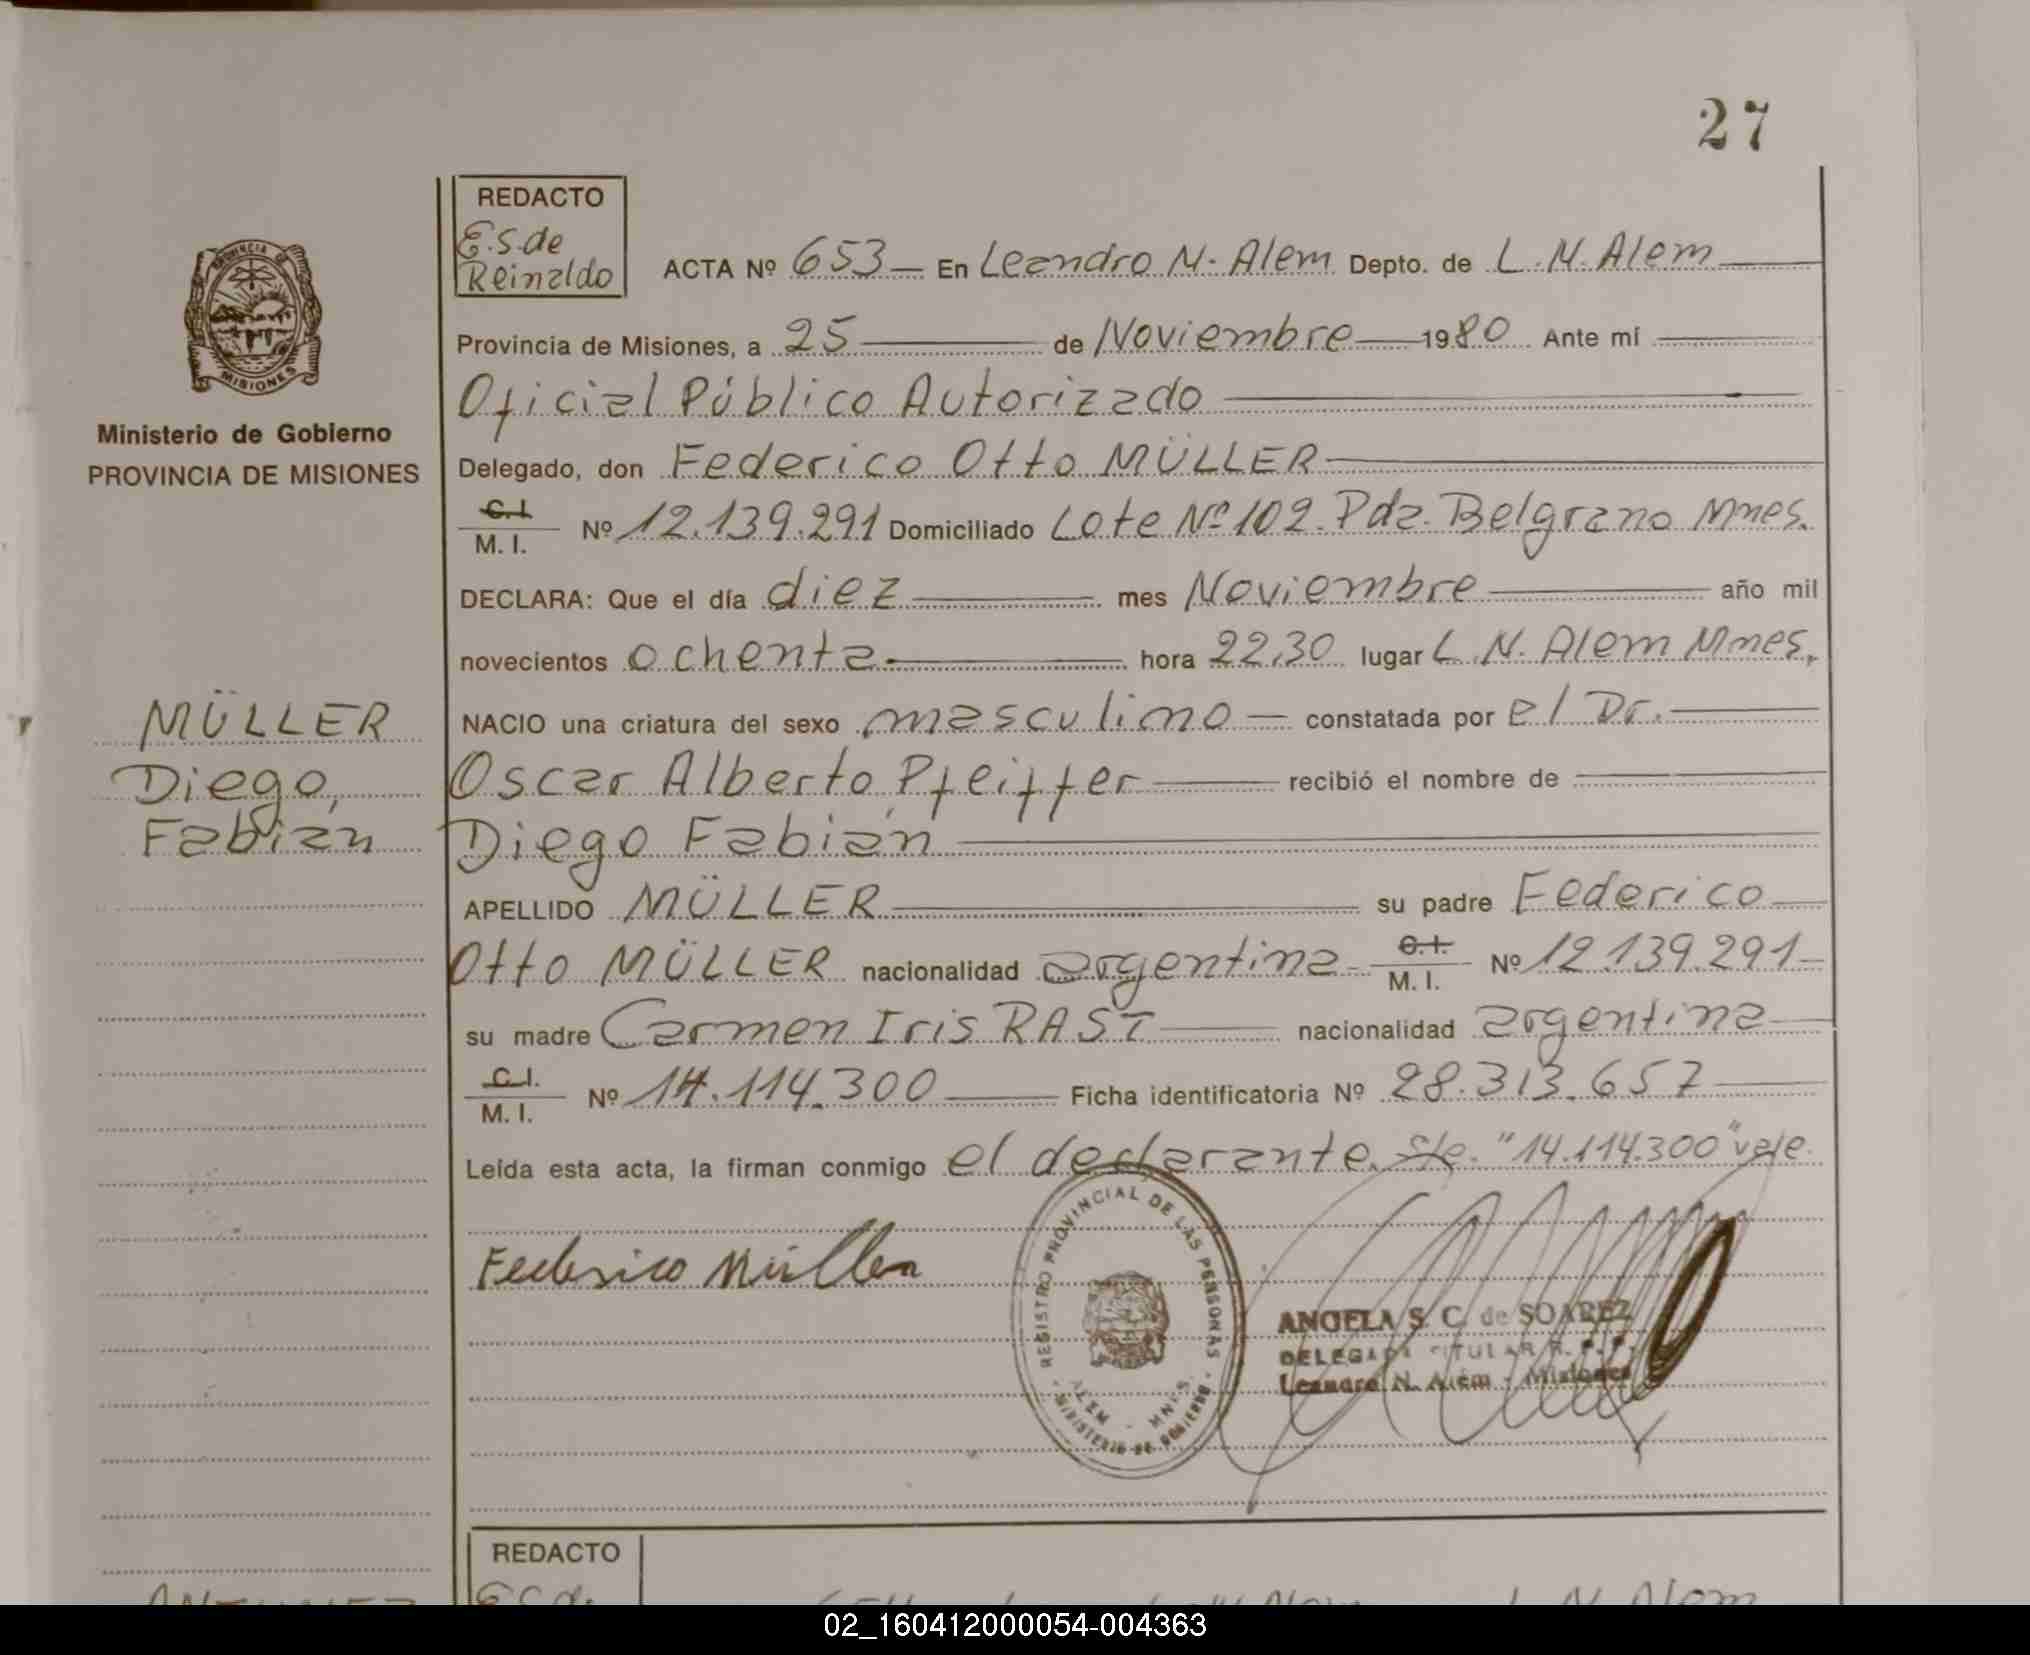 27
REDACTO
E.S.de
Reinaldo
ACTA Nº 653 En Leandro N. Alem Depto. de L.N. Alem
Provincia de Misiones, a 25 de Noviembre 1980 Ante mí
Oficial Público Autorizado
Delegado, don Federico Otto MÜLLER
C.I.
M.I. Nº 12.139.291 Domiciliado Lote Nº 102. Pda. Belgrano Mnes.
DECLARA: Que el día diez mes Noviembre año mil
novecientos ochenta hora 22,30 lugar L.N. Alem Mnes.
NACIO una criatura del sexo masculino constatada por el Dr.
Oscar Alberto Pfeiffer recibió el nombre de
Diego Fabián
APELLIDO MÜLLER su padre Federico
Otto MÜLLER nacionalidad argentina C.I.
M.I. Nº 12.139.291
su madre Carmen Iris RAST nacionalidad argentina
C.I.
M.I. Nº 14.114.300 Ficha identificatoria Nº 28.313.657
Leída esta acta, la firman conmigo el declarante. S/e. "14.114.300" vale.
Federico Müller
REGISTRO PROVINCIAL DE LAS PERSONAS
ALEM - MNES
MINISTERIO DE GOBIERNO
ANGELA S. C. de SOAREZ
DELEGADA TITULAR R. P. P.
Leandro N. Alem - Misiones
PROVINCIA DE
MISIONES
Ministerio de Gobierno
PROVINCIA DE MISIONES
MÜLLER
Diego,
Fabián
REDACTO
E.S.de
Alem L.N. Alem
02_160412000054-004363